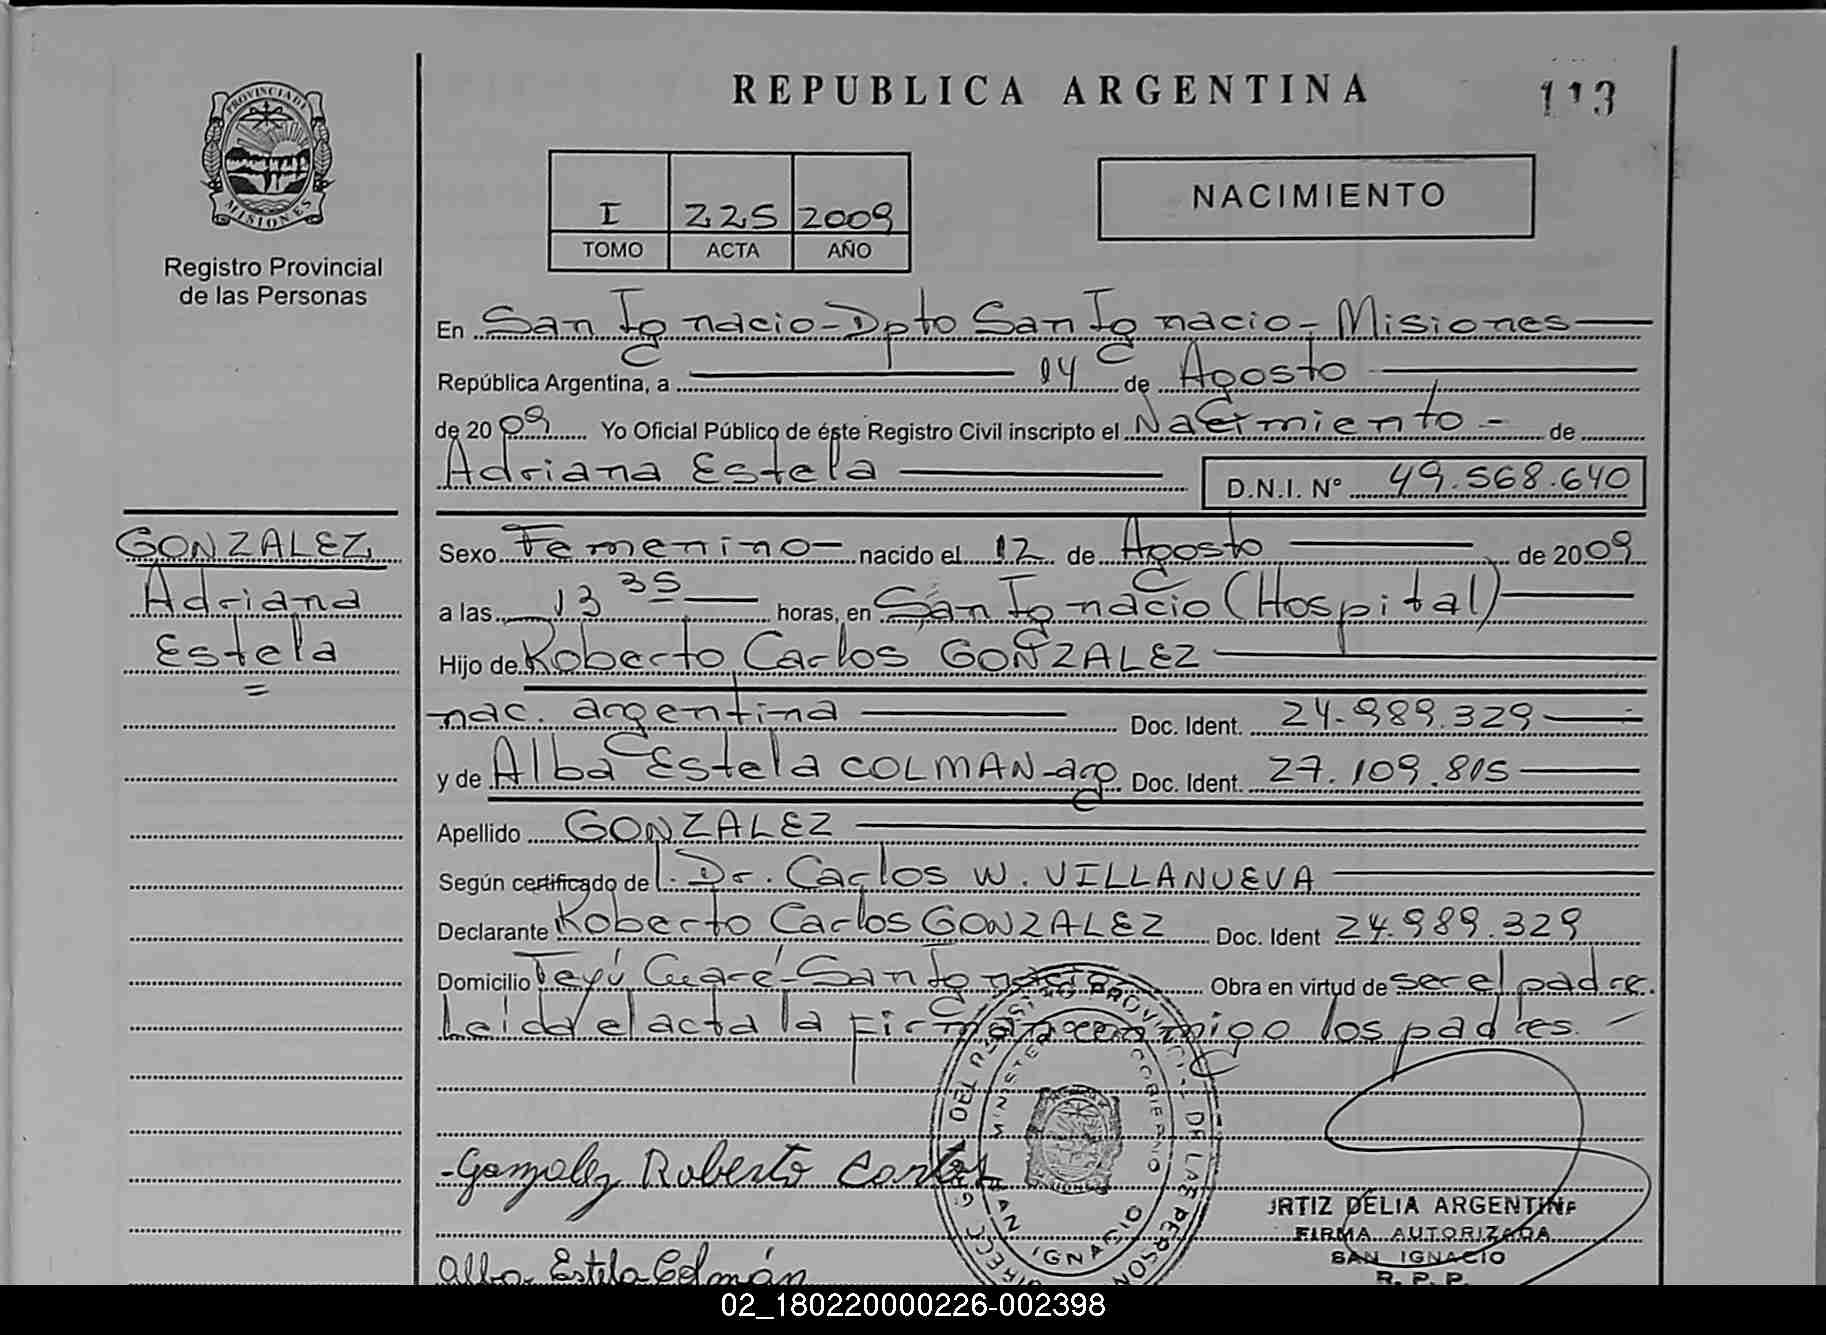 REPUBLICA ARGENTINA
113
PROVINCIA DE
MISIONES
Registro Provincial
de las Personas
I 225 2009
TOMO ACTA AÑO
NACIMIENTO
En San Ignacio-Dpto San Ignacio-Misiones
República Argentina, a 14 de Agosto
de 2009 Yo Oficial Público de éste Registro Civil inscripto el Nacimiento - de
Adriana Estela
D.N.I. N° 49.568.640
GONZALEZ
Adriana
Estela
Sexo Femenino nacido el 12 de Agosto de 2009
a las 13 35 horas, en San Ignacio (Hospital)
Hijo de Roberto Carlos GONZALEZ
nac. argentina Doc. Ident. 24.989.329
y de Alba Estela COLMAN-arg Doc. Ident. 27.109.815
Apellido GONZALEZ
Según certificado del. Dr. Carlos W. VILLANUEVA
Declarante Roberto Carlos GONZALEZ Doc. Ident 24.989.329
Domicilio Teyú Cuaré-San Ignacio Obra en virtud de ser el padre.
Leída el acta la firman conmigo los padres.
Gonzalez Roberto Carlos
SAN IGNACIO
ORTIZ DELIA ARGENTINA
FIRMA AUTORIZADA
SAN IGNACIO
R. P. P.
Alba Estela Colmán
02_180220000226-002398